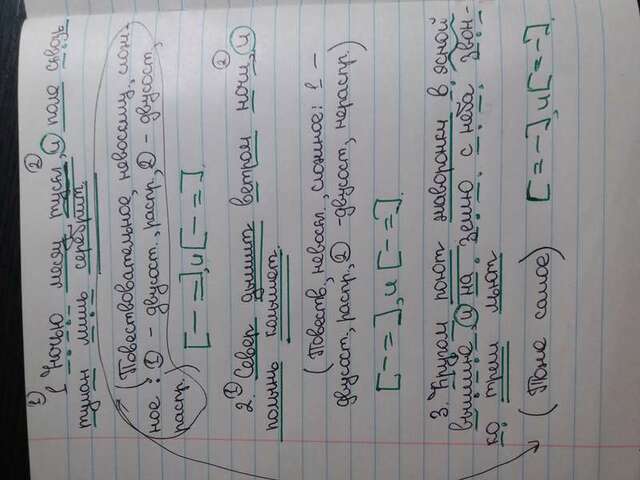 1. Ночью месяц тускл, и поле сквозь
туман лишь серебрит.
(Повествовательное, невосклиц, слож-
ное: 1 - двусост., распр., 2 - двусост,
распр.)
[- =], и [- =]
2. Север дышит ветром ночи, и
полынь колышет.
(Повеств, невоскл., сложное: 1 -
двусост, распр, 2 - двусост, нераспр.)
[- =], и [- =].
3. Кругом поют жаворонки в ясной
вышине, и на землю с неба звон-
ко трели льют
(Тоже самое) [= -], и [= -]